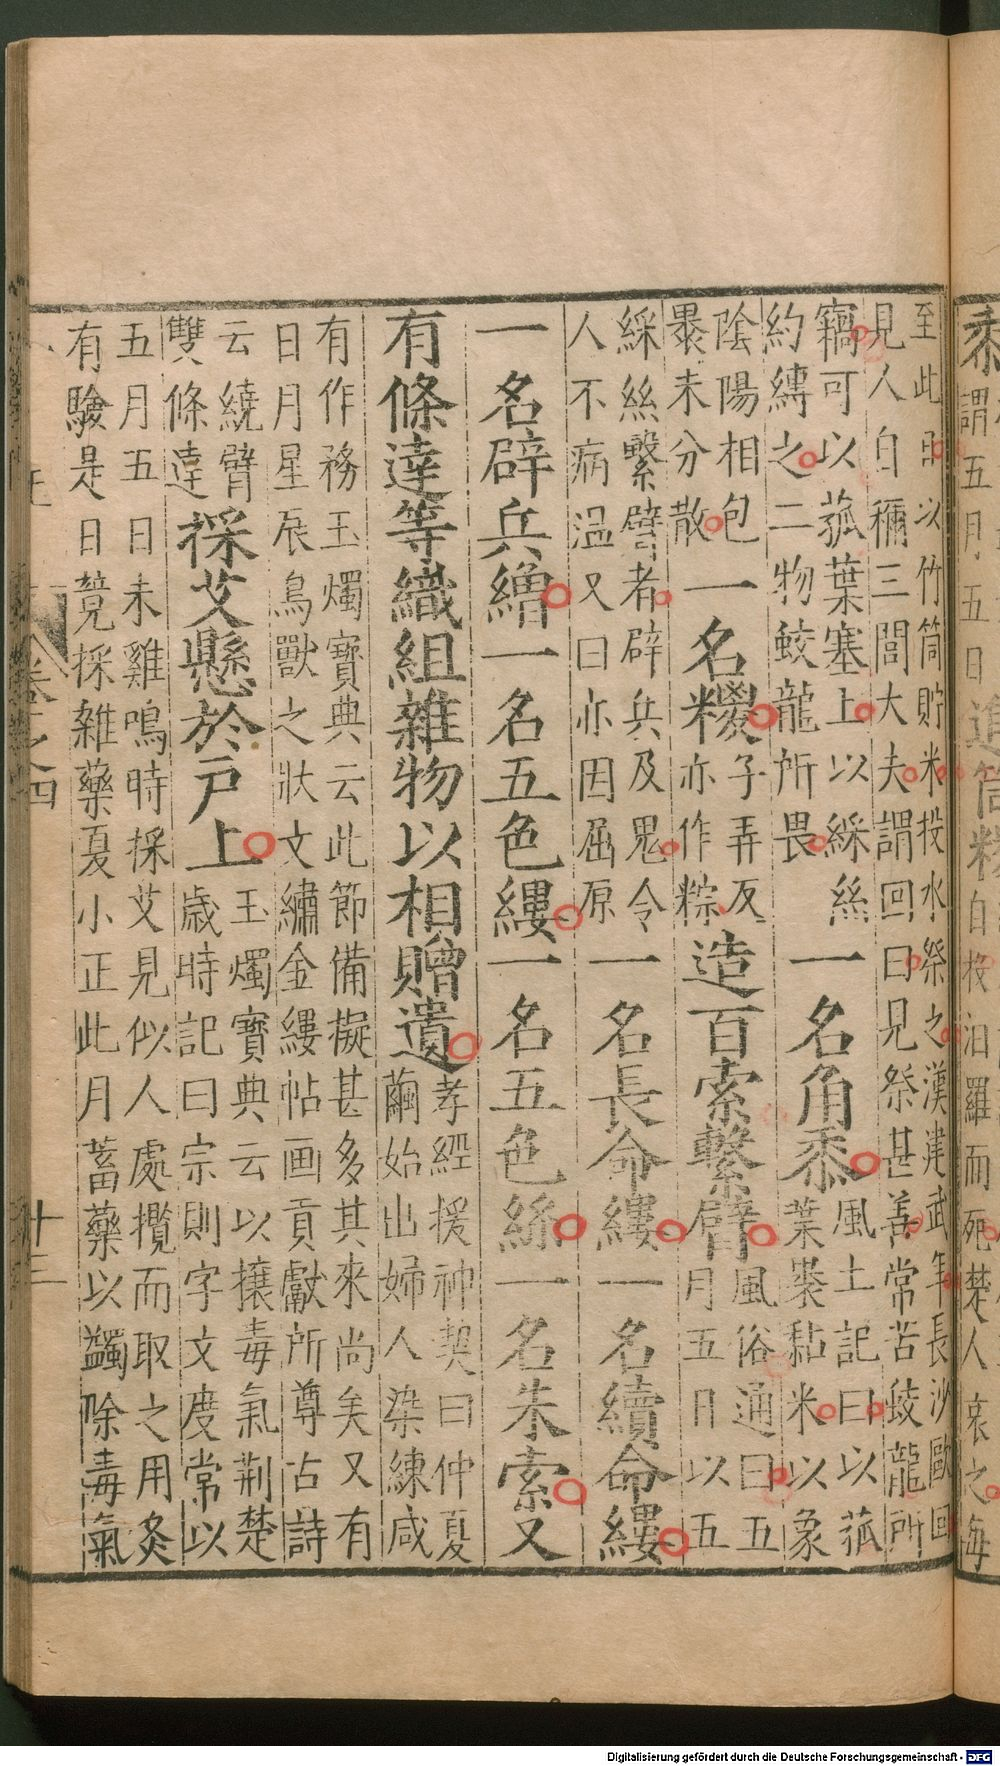 黍謂五月五日進筒糉自投汨羅而死楚人哀之每
至此日以竹筒貯米投水祭之漢建武年長沙歐回
見人自稱三閭大夫謂回曰見祭甚善常苦蛟龍所
竊可以菰葉塞上以綵絲
約縛之二物蛟龍所畏
一名角黍
風土記曰以菰
葉裹黏米以象
陰陽相包
褁未分散
一名糉
子弄反
亦作粽
造百索繫臂
風俗通曰五
月五日以五
綵絲繫臂者辟兵及鬼令
人不病温又曰亦因屈原
一名長命縷一名續命縷
一名辟兵繒一名五色縷一名五色絲一名朱索又
有條達等織組雜物以相贈遺
孝經援神契曰仲夏
繭始出婦人染練咸
有作務玉燭寶典云此節備擬甚多其來尚矣又有
日月星辰鳥獸之狀文繡金縷帖画貢獻所尊古詩
云繞臂
雙條達
採艾懸於戶上
玉燭寶典云以攘毒氣荆楚
歲時記曰宗則字文度常以
五月五日未雞鳴時採艾見似人處攬而取之用灸
有驗是日競採雜藥夏小正此月蓄藥以蠲除毒氣
卷之四
十二
Digitalisierung gefördert durch die Deutsche Forschungsgemeinschaft - DFG